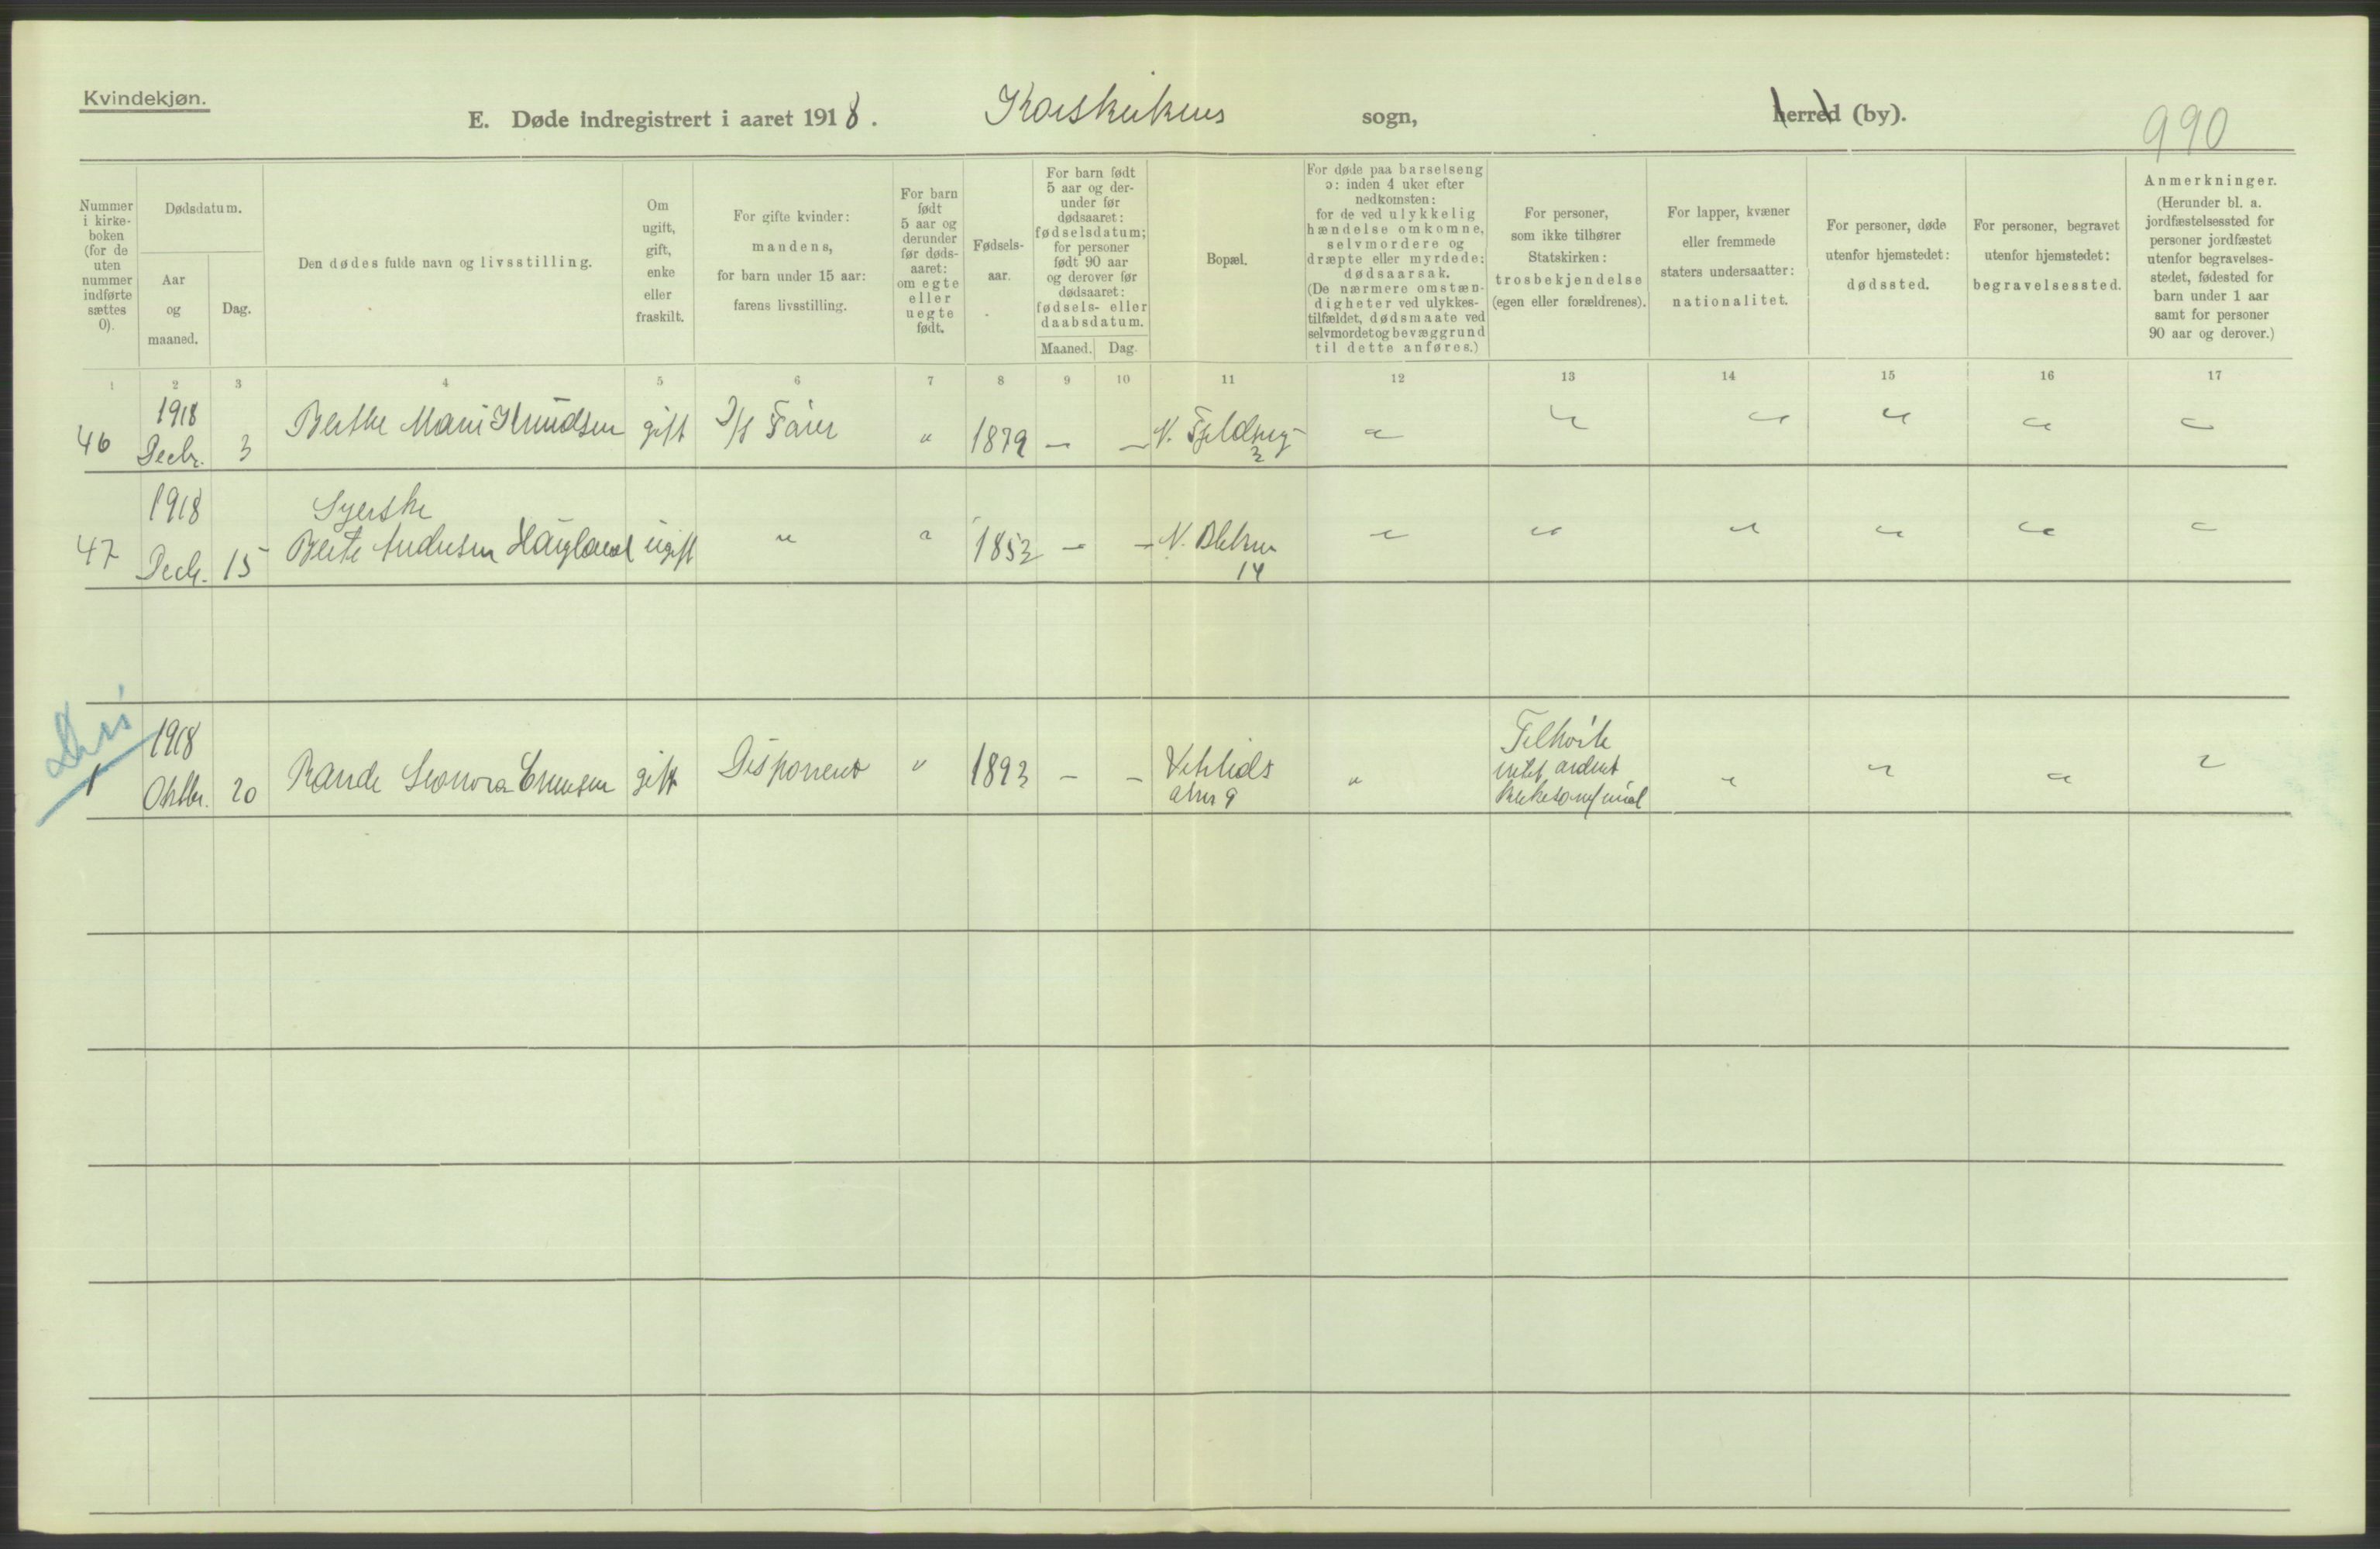 Kvindekjøn.
E. Døde indregistrert i aaret 1918. Korskirkens sogn, herred (by).
990
Nummer i kirke-boken (for de uten nummer indførte sættes 0).
Dødsdatum.
Aar og maaned.
Dag.
Den dødes fulde navn og livsstilling.
Om ugift, gift, enke eller fraskilt.
For gifte kvinder: mandens, for barn under 15 aar: farens livsstilling.
For barn født 5 aar og derunder før døds-aaret: om egte eller uegte født.
Fødsels-aar.
For barn født 5 aar og der-under før dødsaaret: fødselsdatum; for personer født 90 aar og derover før dødsaaret: fødsels- eller daabsdatum.
Maaned.
Dag.
Bopæl.
For døde paa barselseng ɔ: inden 4 uker efter nedkomsten: for de ved ulykkelig hændelse omkomne, selvmordere og dræpte eller myrdede: dødsaarsak. (De nærmere omstæn-digheter ved ulykkes-tilfældet, dødsmaate ved selvmordet og bevæggrund til dette anføres.)
For personer, som ikke tilhører Statskirken: trosbekjendelse (egen eller forældrenes).
For lapper, kvæner eller fremmede staters undersaatter: nationalitet.
For personer, døde utenfor hjemstedet: dødssted.
For personer, begravet utenfor hjemstedet: begravelsessted.
Anmerkninger. (Herunder bl. a. jordfæstelsessted for personer jordfæstet utenfor begravelses-stedet, fødested for barn under 1 aar samt for personer 90 aar og derover.)
1 2 3 4 5 6 7 8 9 10 11 12 13 14 15 16 17
1918
46 Decbr. 3 Berthe Marie Knudsen gift " 1879 — — N. Fjeldvei 3 " " " " " "
1918 Syerske
47 Decb. 15 Berte Andersen Haugland ugift " " 1852 — — N. Blekev 14 " " " " " "
Diss
1918
1 Oktbr. 20 Rande Leonora gift Disponent " 1893 — — 9 " Tilhørte intet andet kirkesamfund " " " "